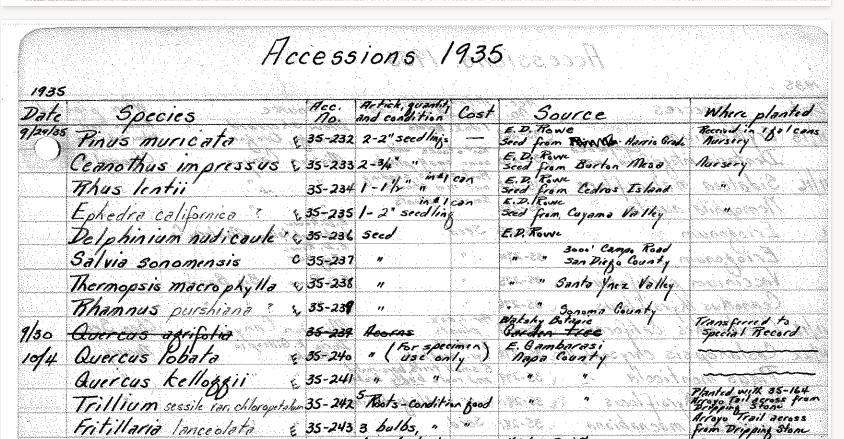 Accessions 1935
1935
Date Species Acc. No. Article, quantity and condition Cost Source Where planted
9/29/35 Pinus muricata E 35-232 2-2" seedlings — E.D. Rowe Seed from Harris Grade Received in 1 gal cans Nursery
Ceanothus impressus E 35-233 2-3/4" " in #1 can E.D. Rowe Seed from Burton Mesa Nursery
Rhus lentii 35-234 1-1 1/2" " in #1 can E.D. Rowe Seed from Cedros Island "
Ephedra californica ? E 35-235 1-2" seedling E.D. Rowe Seed from Cuyama Valley "
Delphinium nudicaule E 35-236 seed E.D. Rowe
Salvia sonomensis C 35-237 " " " 3000' Campo Road San Diego County
Thermopsis macrophylla E 35-238 " " " Santa Ynez Valley
Rhamnus purshiana ? E 35-239 " " " Sonoma County
9/30 Quercus agrifolia 35-239 Acorns Garden Tree Transferred to Special Record
10/4 Quercus lobata E 35-240 " (For specimen use only) E. Gambarasi Napa County
Quercus kelloggii E 35-241 " " " "
Trillium sessile var. chloropetalum E 35-242 5 Roots-Condition good " " Planted with 35-164 Arroyo Trail across from Dripping Stone
Fritillaria lanceolata E 35-243 3 bulbs, " " " " Arroyo Trail across from Dripping Stone